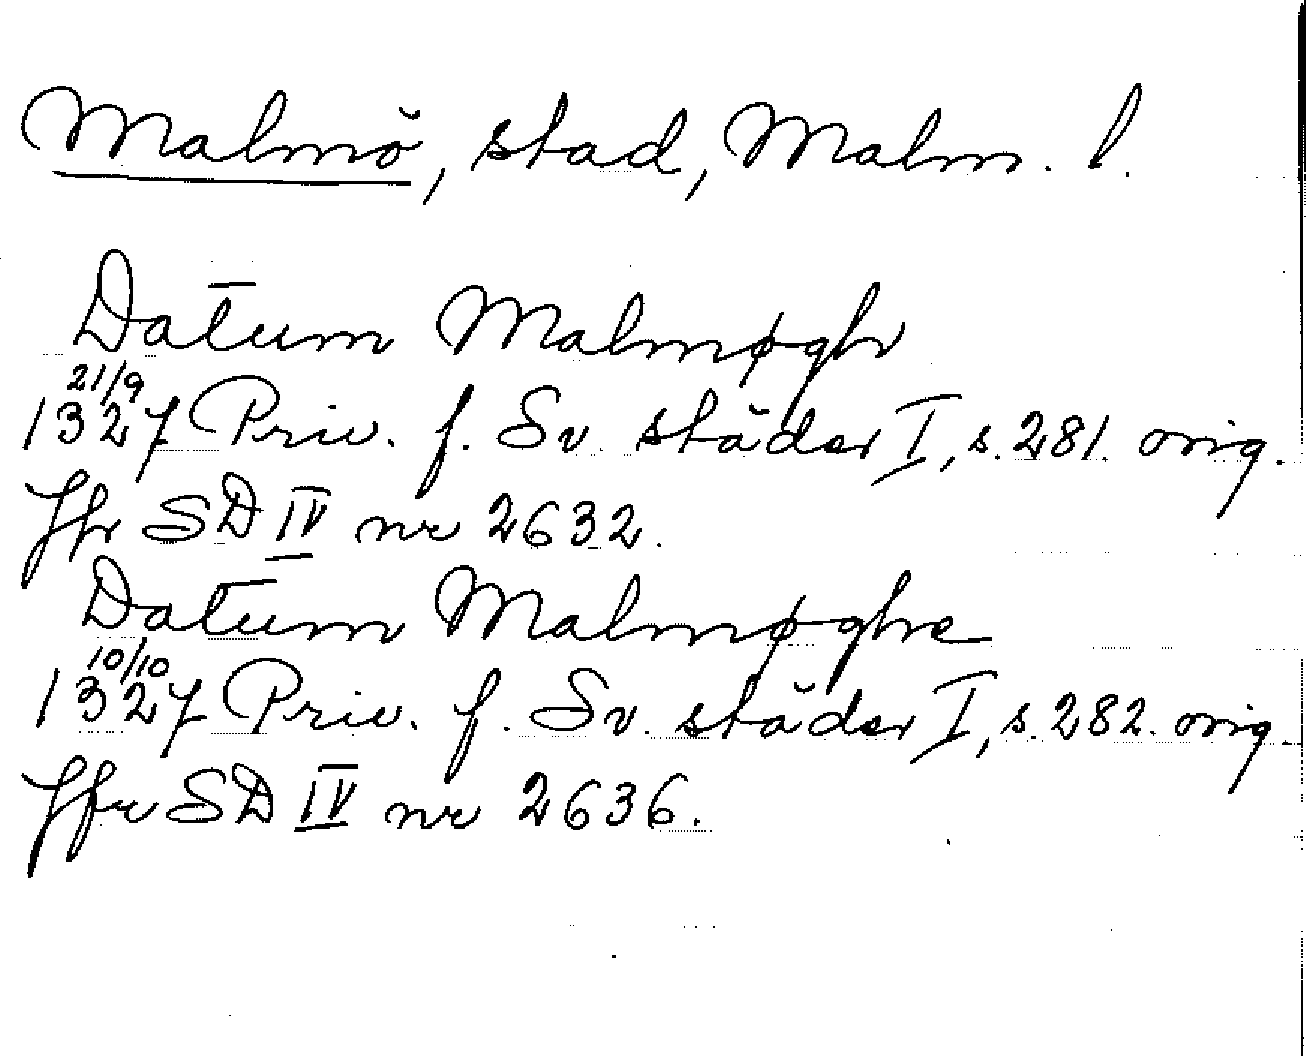 Malmö, stad, Malm. l.
Datum Malmøghr
21/9
1327 Priv. f. Sv. städer I, s. 281. orig.
Jfr SD IV nr 2632.
Datum Malmøghe
10/10
1327 Priv. f. Sv. städer I, s. 282. orig.
Jfr SD IV nr 2636.